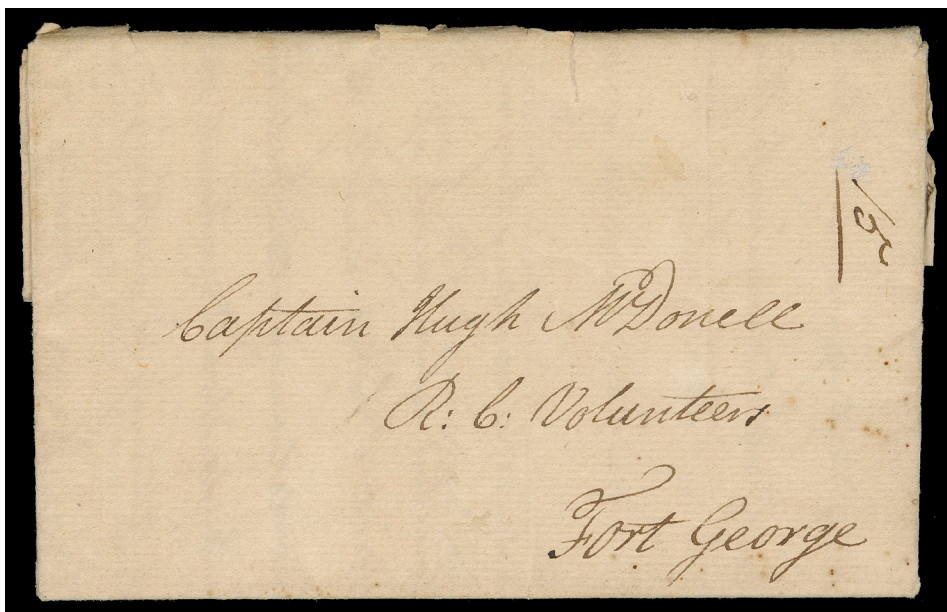 Captain Hugh McDonell
R: C: Volunteers
Fort George